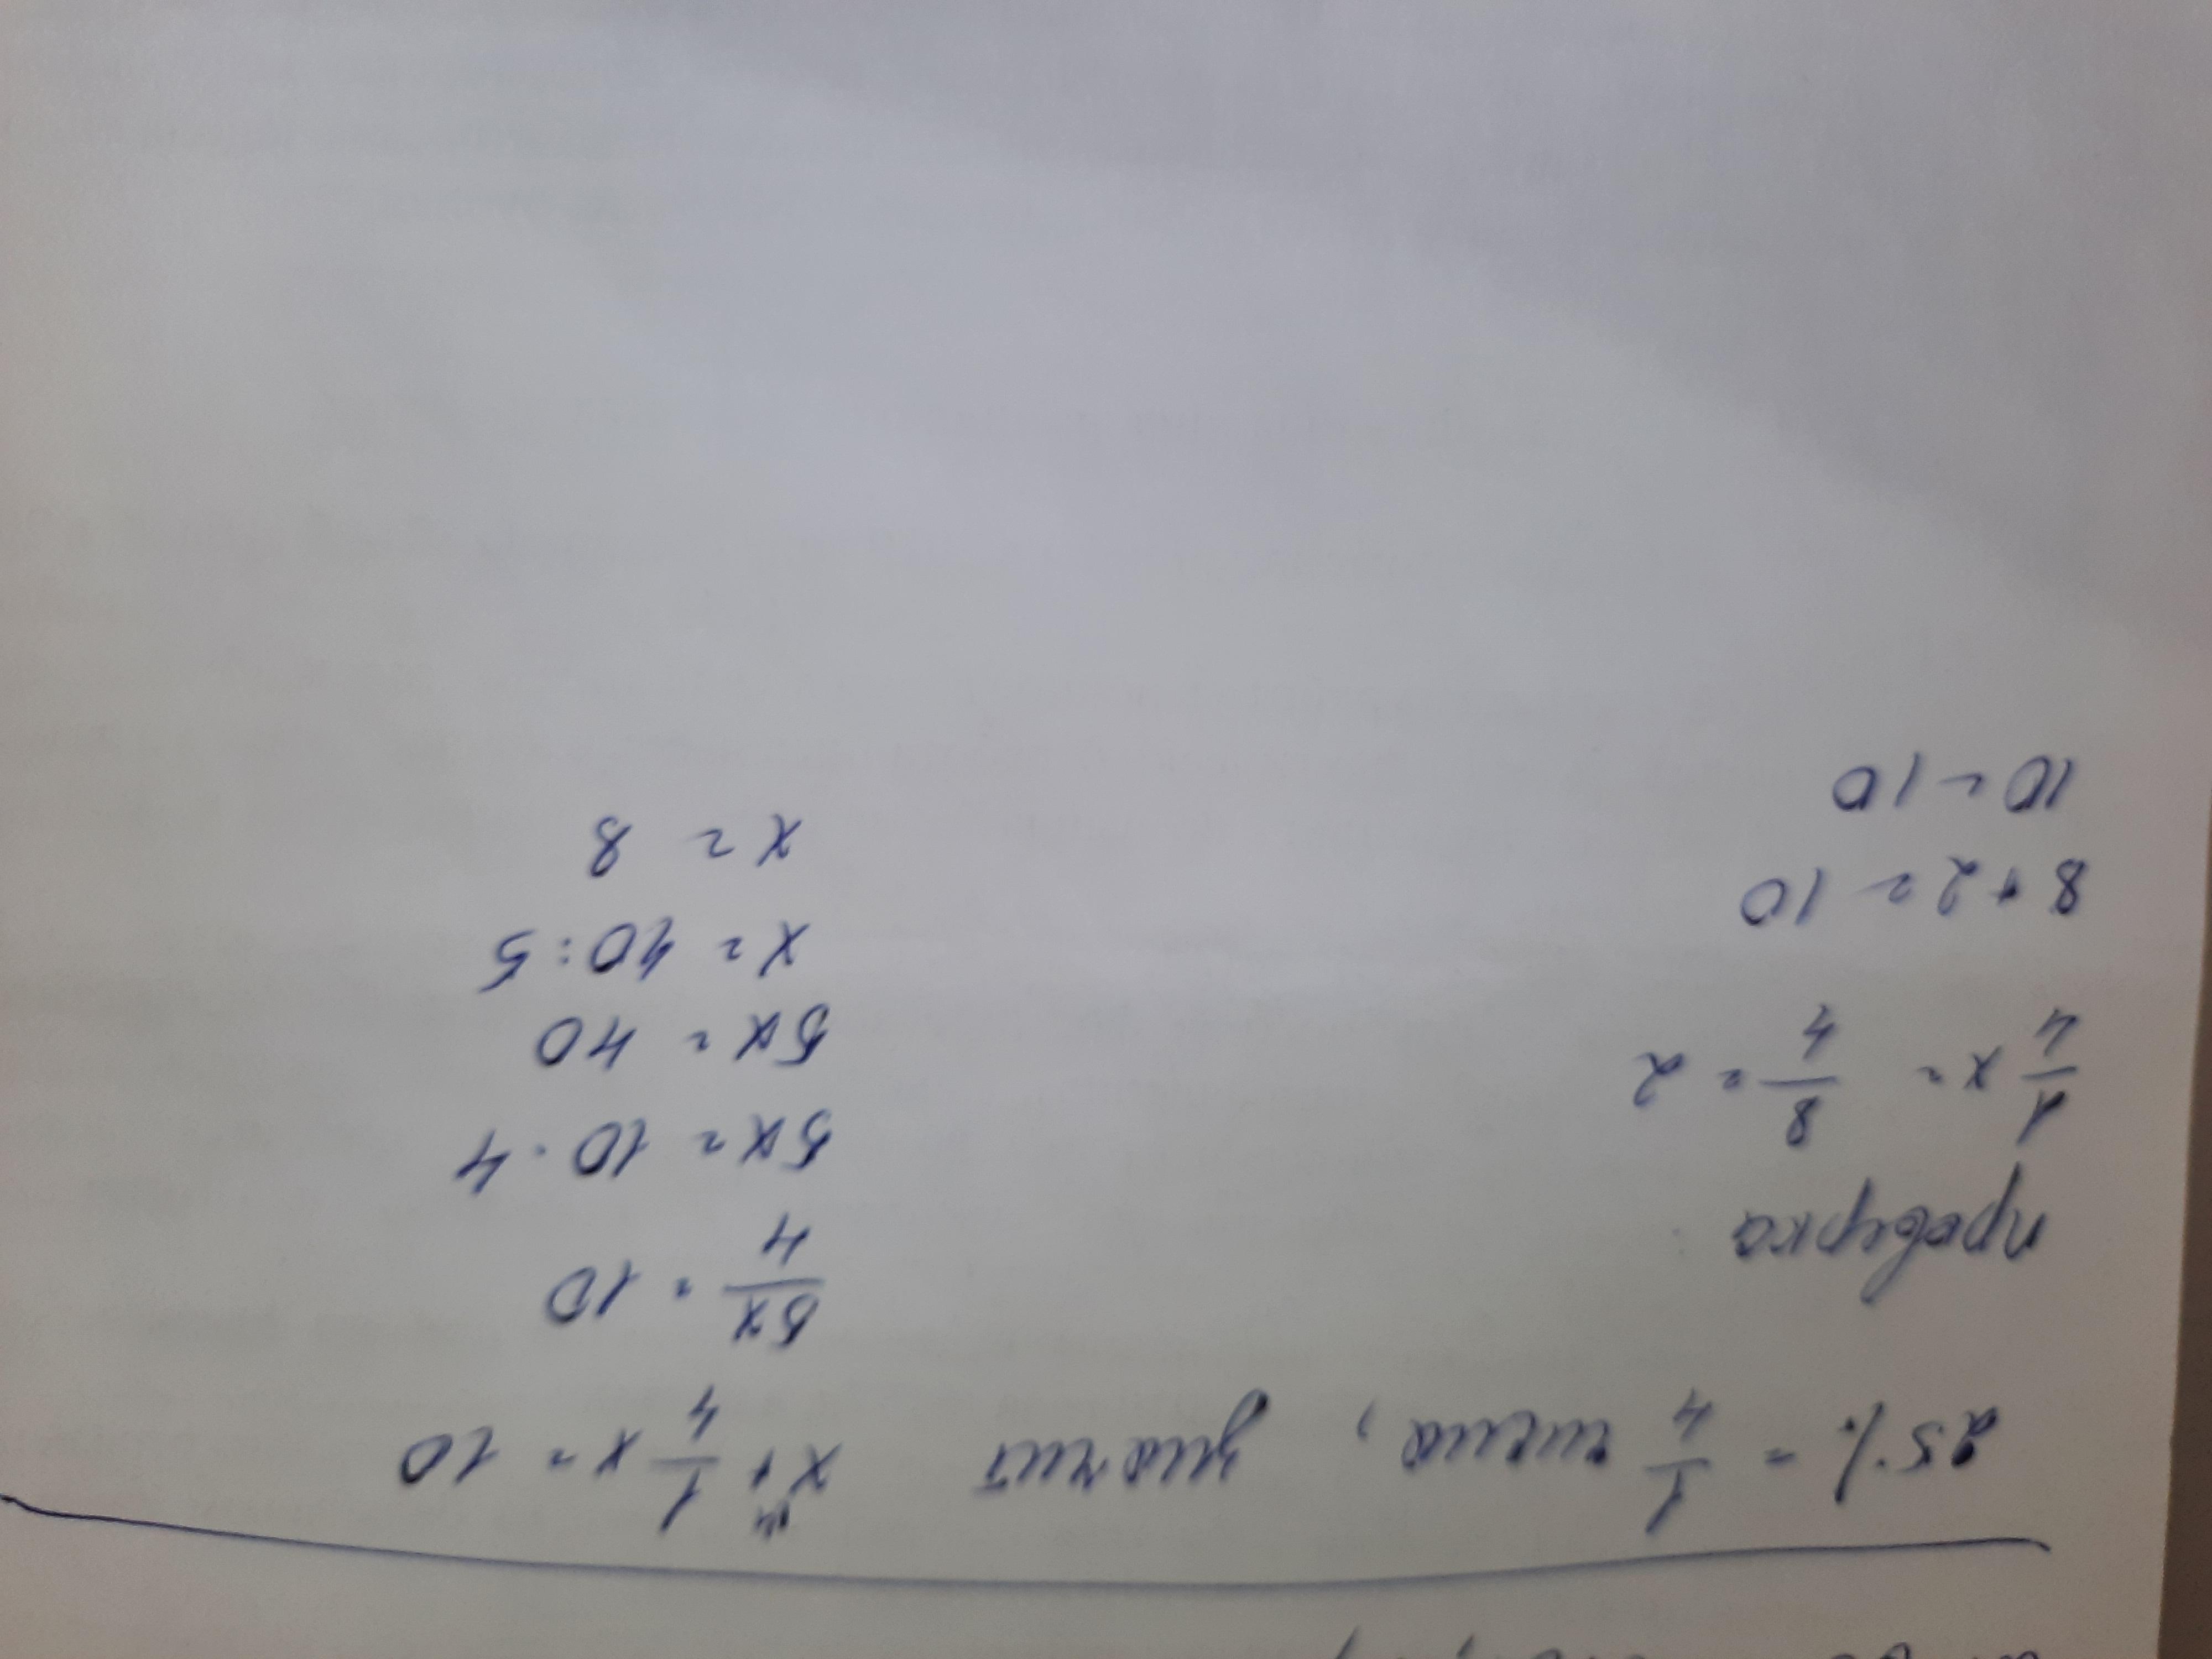 25% = 1/4 числа, значит x + 1/4 x = 10
5x/4 = 10
5x = 10 · 4
5x = 40
x = 40 : 5
x = 8
проверка
1/4 x = 8/4 = 2
8 + 2 = 10
10 = 10